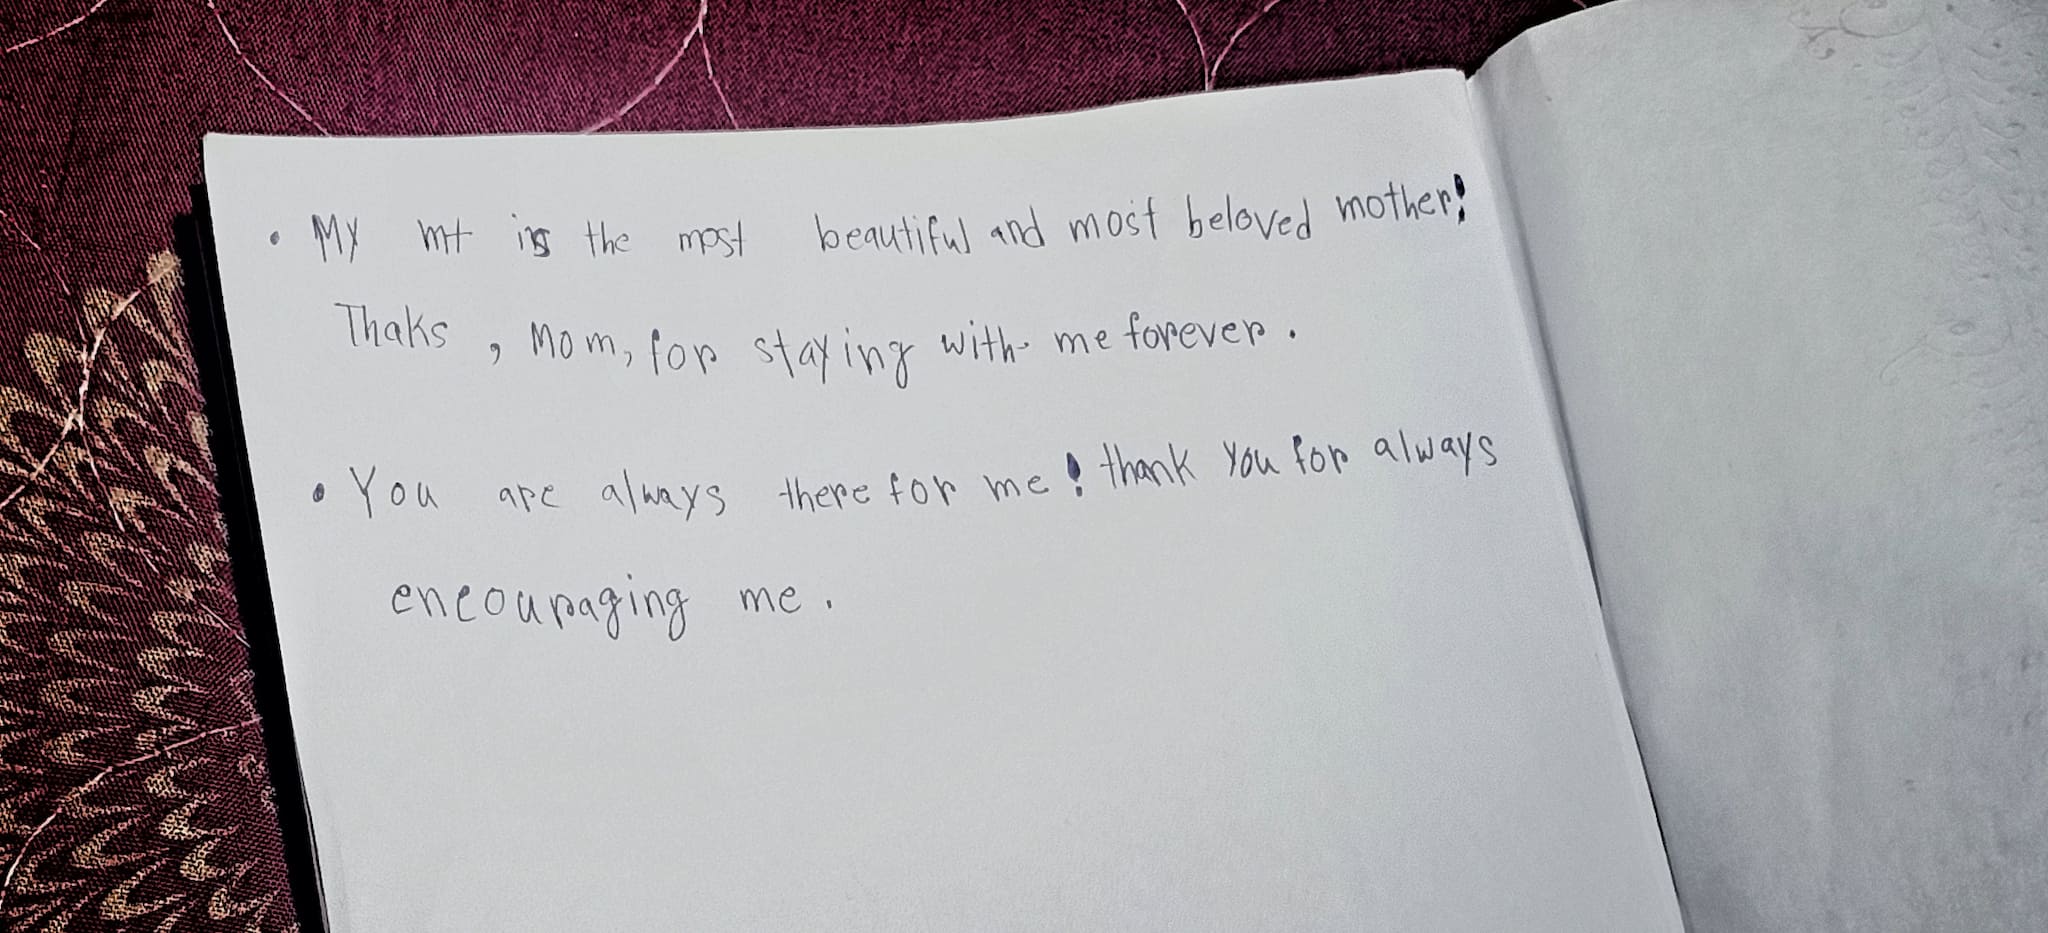 • My mt is the most beautiful and most beloved mother!
Thaks , Mom, for staying with me forever .
• You are always there for me ! thank you for always
encouraging me .